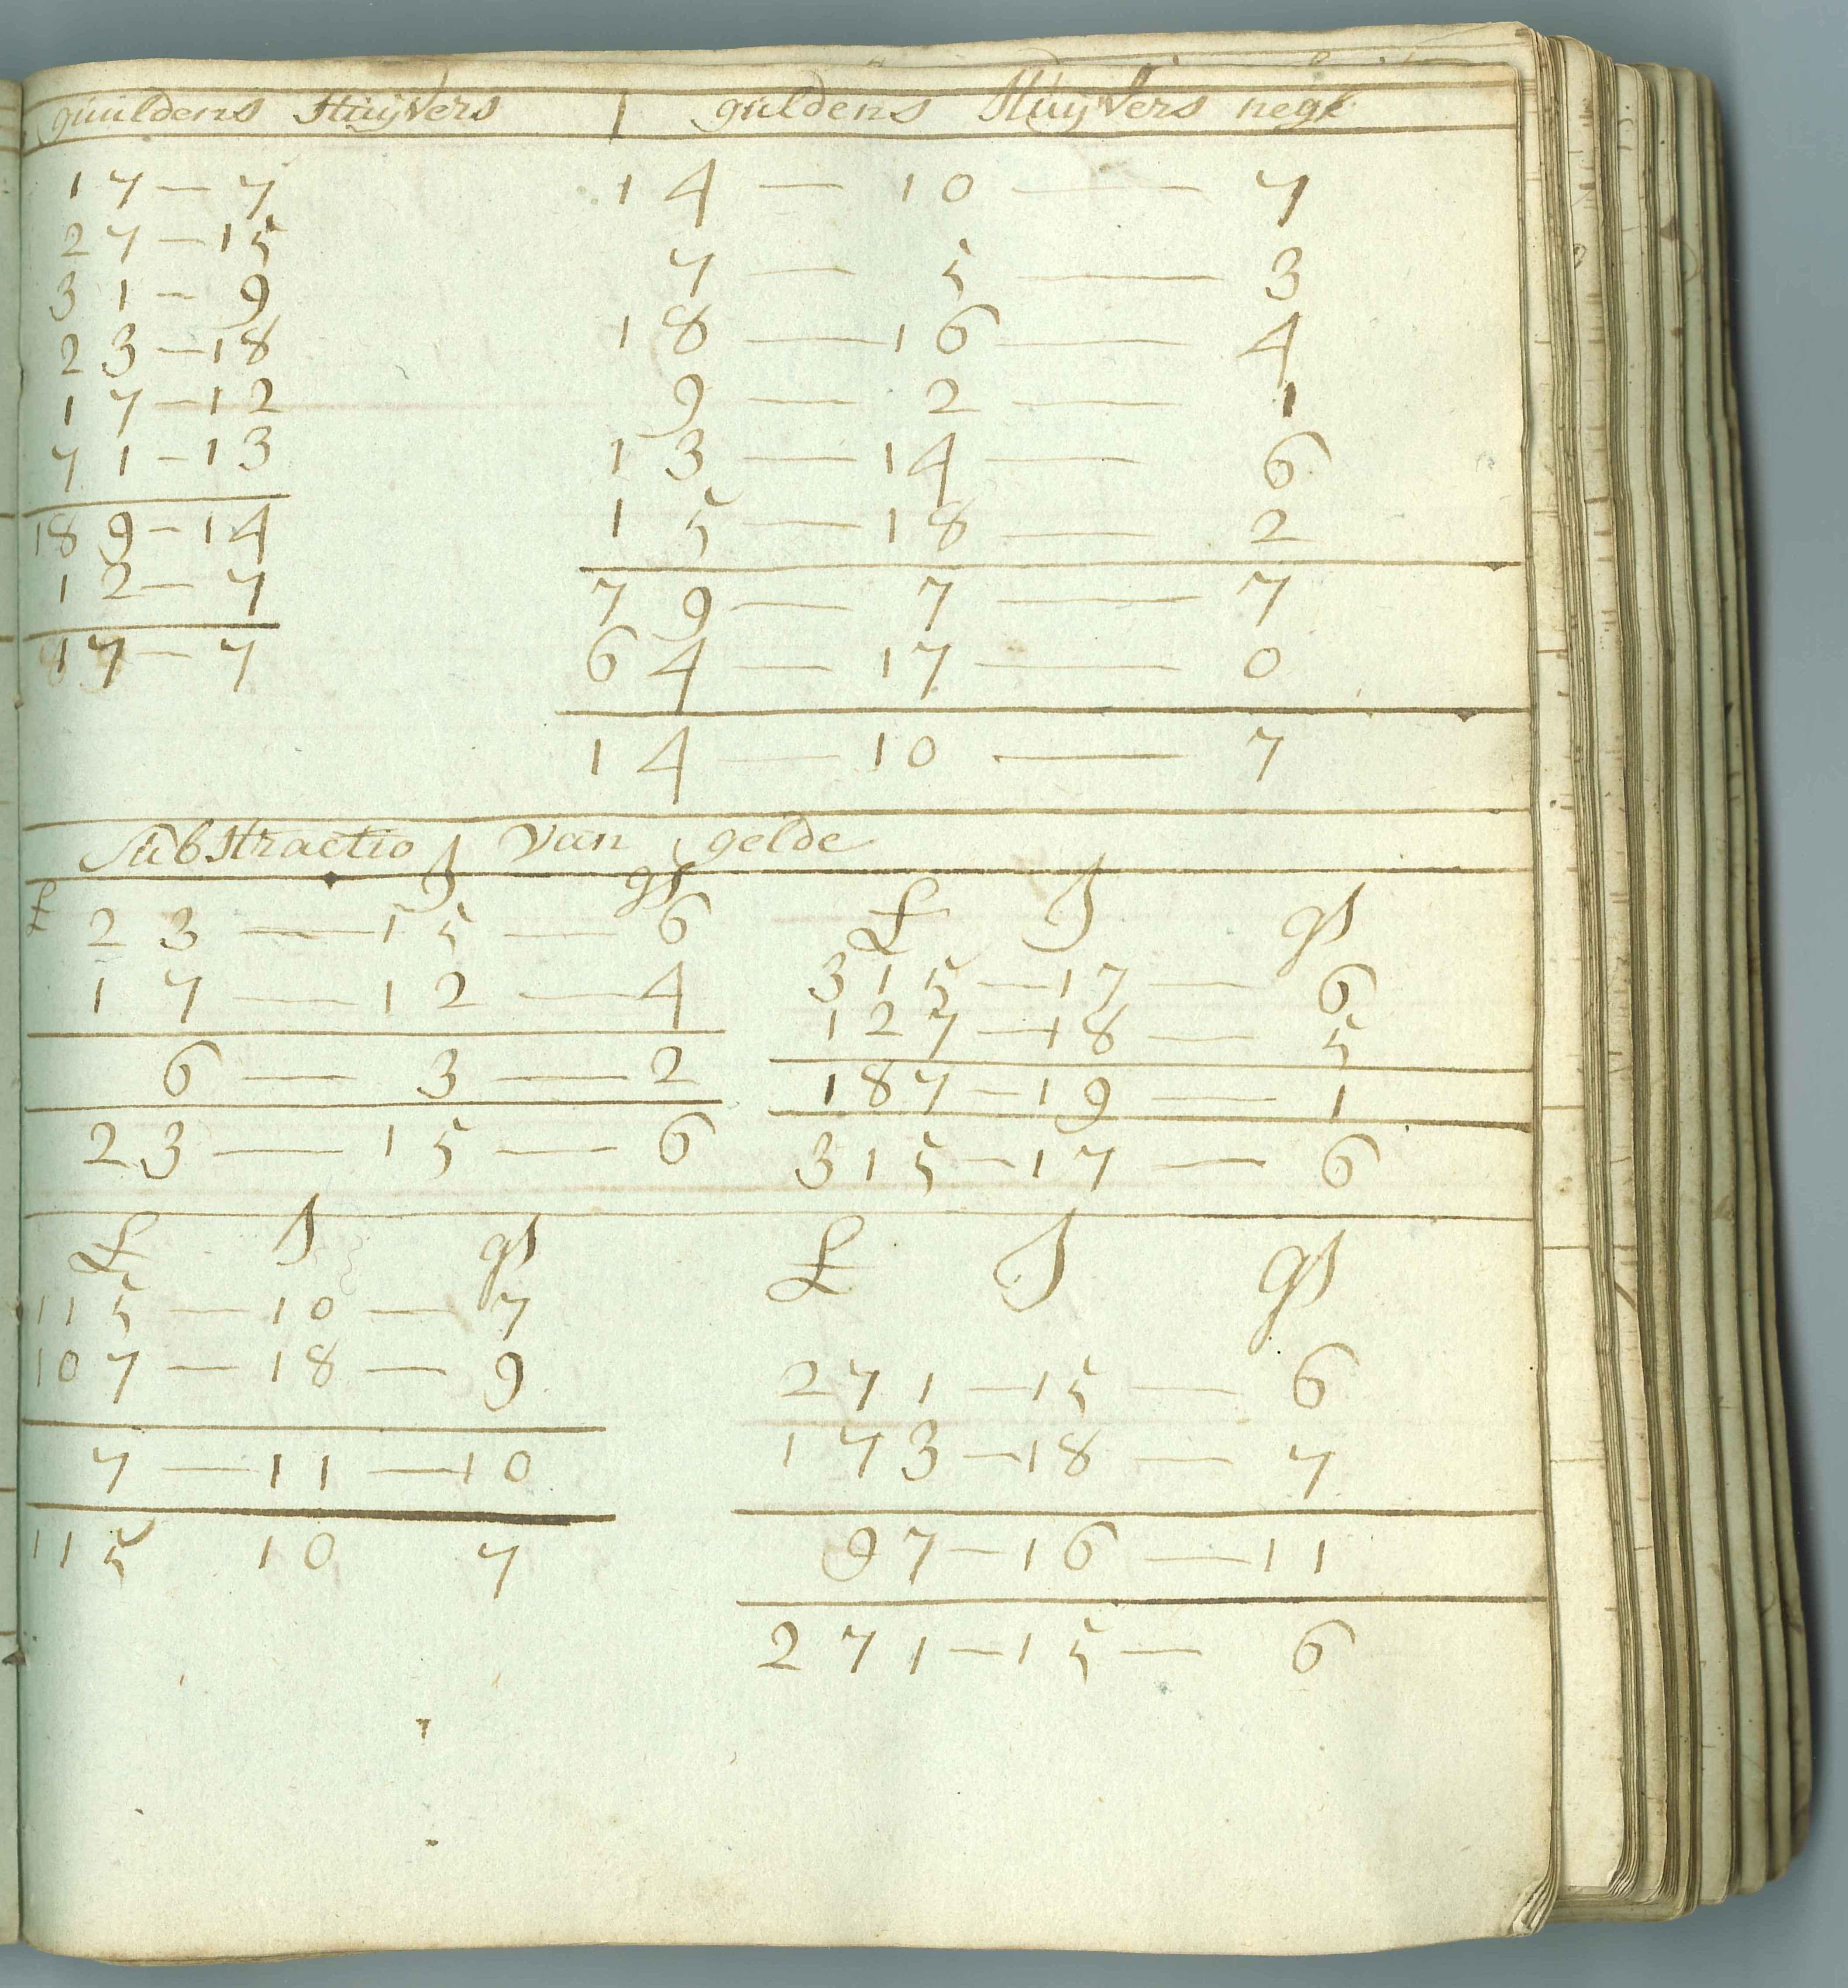 guuldens stuijvers
17 — 7
27 — 15
31 — 9
23 — 18
17 — 12
71 — 13
189 — 14
12 — 7
17 — 7
guldens stuijvers
14 — 10 — 7
7 — 5 — 3
18 — 16 — 4
9 — 2 — 1
13 — 14 — 6
15 — 18 — 2
79 — 7 — 7
64 — 17 — 0
14 — 10 — 7
substractio van gelde
£ ß gß
23 — 15 — 6
17 — 12 — 4
6 — 3 — 2
23 — 15 — 6
£ ß gß
315 — 17 — 6
127 — 18 — 5
187 — 19 — 1
315 — 17 — 6
£ ß gß
115 — 10 — 7
107 — 18 — 9
7 — 11 — 10
115 10 7
£ ß gß
271 — 15 — 6
173 — 18 — 7
97 — 16 — 11
271 — 15 — 6